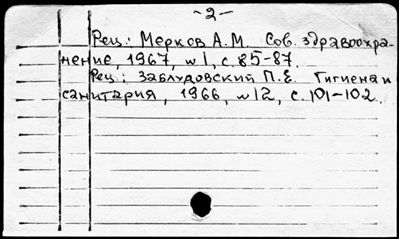 -2-
Рец.: Мерков А.М. Сов. здравоохра-
нение, 1967, №1, с. 85-87.
Рец.: Заблудовский П.Е. Гигиена и
санитария, 1966, №12, с. 101-102.